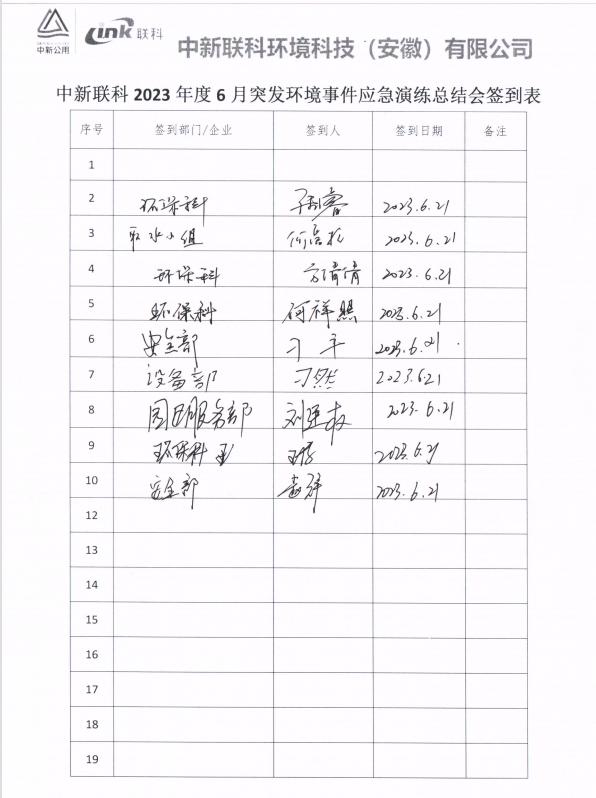 中新公用
Link 联科
中新联科环境科技（安徽）有限公司
中新联科 2023 年度 6 月突发环境事件应急演练总结会签到表
序号 签到部门/企业 签到人 签到日期 备注
1
2 环保科 2023.6.21
3 取水小组 2023.6.21
4 环保科 方清倩 2023.6.21
5 环保科 何祥照 2023.6.21
6 安全部 刁平 2023.6.21
7 设备部 刁然 2023.6.21
8 园区服务部 2023.6.21
9 环保科 2023.6.21
10 安全部 2023.6.21
12
13
14
15
16
17
18
19